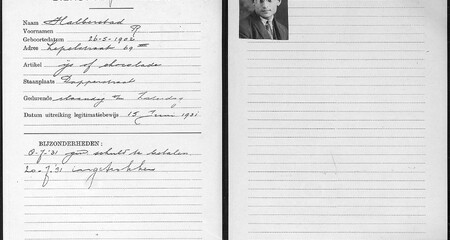 Naam Halberstad
Voornamen R
Geboortedatum 26-2-1902
Adres Lepelstraat 69 III
Artikel ijs of chocolade
Staanplaats Dapperstraat
Gedurende maandag en Zaterdag
Datum uitreiking legitimatiebewijs 15 Juni 1931
BIJZONDERHEDEN:
8-7-'31 schuld te betalen
20-7-'31 ingetrokken